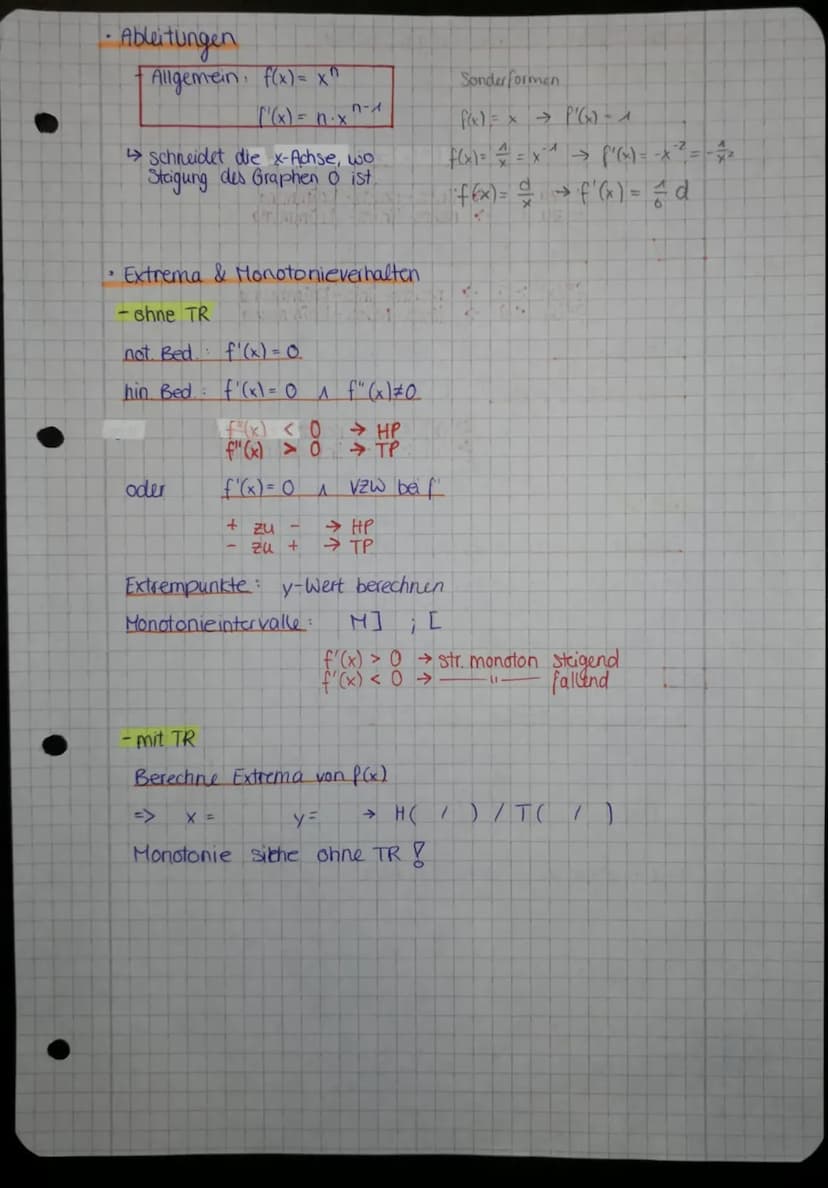 • Ableitungen
Allgemein: f(x) = xⁿ
f'(x) = n·xⁿ⁻¹
↳ schneidet die x-Achse, wo
Steigung des Graphen 0 ist.
Sonderformen
f(x) = x → f'(x) = 1
f(x) = 1/x = x⁻¹ → f'(x) = -x⁻² = -1/x²
f(x) = d/x → f'(x) = 1/6 d
• Extrema & Monotonieverhalten
- ohne TR
not. Bed.: f'(x) = 0
hin Bed.: f'(x) = 0 ∧ f''(x) ≠ 0
f''(x) < 0 → HP
f''(x) > 0 → TP
oder f'(x) = 0 ∧ VZW bei f'
+ zu - → HP
- zu + → TP
Extrempunkte: y-Wert berechnen
Monotonieintervalle: M] ; [
f'(x) > 0 → str. monoton steigend
f'(x) < 0 → —— " —— fallend
- mit TR
Berechne Extrema von f(x)
=> x = y = → H( / ) / T( / )
Monotonie siehe ohne TR !